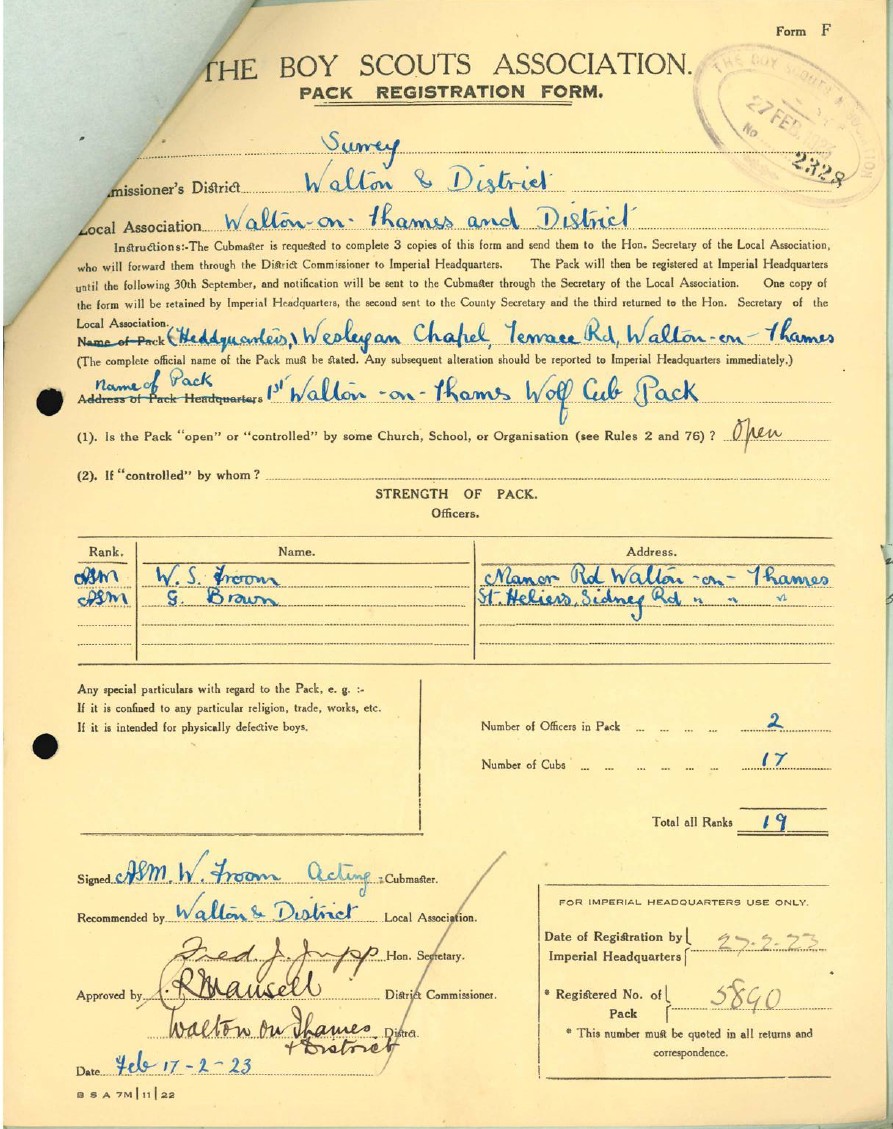 Form F
THE BOY SCOUTS ASSOCIATION.
PACK REGISTRATION FORM.
THE BOY SCOUTS ASSOCIATION
27 FEB
No 2328
Surrey
missioner's District Walton & District
Local Association Walton-on-Thames and District
Instructions:-The Cubmaster is requested to complete 3 copies of this form and send them to the Hon. Secretary of the Local Association,
who will forward them through the District Commissioner to Imperial Headquarters. The Pack will then be registered at Imperial Headquarters
until the following 30th September, and notification will be sent to the Cubmaster through the Secretary of the Local Association. One copy of
the form will be retained by Imperial Headquarters, the second sent to the County Secretary and the third returned to the Hon. Secretary of the
Local Association.
Name of Pack (Headquarters,) Wesleyan Chapel, Terrace Rd, Walton-on-Thames
(The complete official name of the Pack must be stated. Any subsequent alteration should be reported to Imperial Headquarters immediately.)
Name of Pack
Address of Pack Headquarters 1st Walton-on-Thames Wolf Cub Pack
(1). Is the Pack "open" or "controlled" by some Church, School, or Organisation (see Rules 2 and 76) ? Open
(2). If "controlled" by whom ?
STRENGTH OF PACK.
Officers.
Rank. Name. Address.
ASM W. S. Froom Manor Rd Walton-on-Thames
ASM G. Brown St. Heliers, Sidney Rd " " "
Any special particulars with regard to the Pack, e. g. :-
If it is confined to any particular religion, trade, works, etc.
If it is intended for physically defective boys.
Number of Officers in Pack ... ... ... ... 2
Number of Cubs ... ... ... ... ... 17
Total all Ranks 19
Signed ASM. W. Froom Acting :Cubmaster.
Recommended by Walton & District Local Association.
Fred. J. Jupp Hon. Secretary.
Approved by Mansell District Commissioner.
Walton on Thames District.
+ District
Date Feb 17-2-23
B S A 7M|11|22
FOR IMPERIAL HEADQUARTERS USE ONLY.
Date of Registration by Imperial Headquarters 27-2-23
* Registered No. of Pack 5890
* This number must be quoted in all returns and
correspondence.